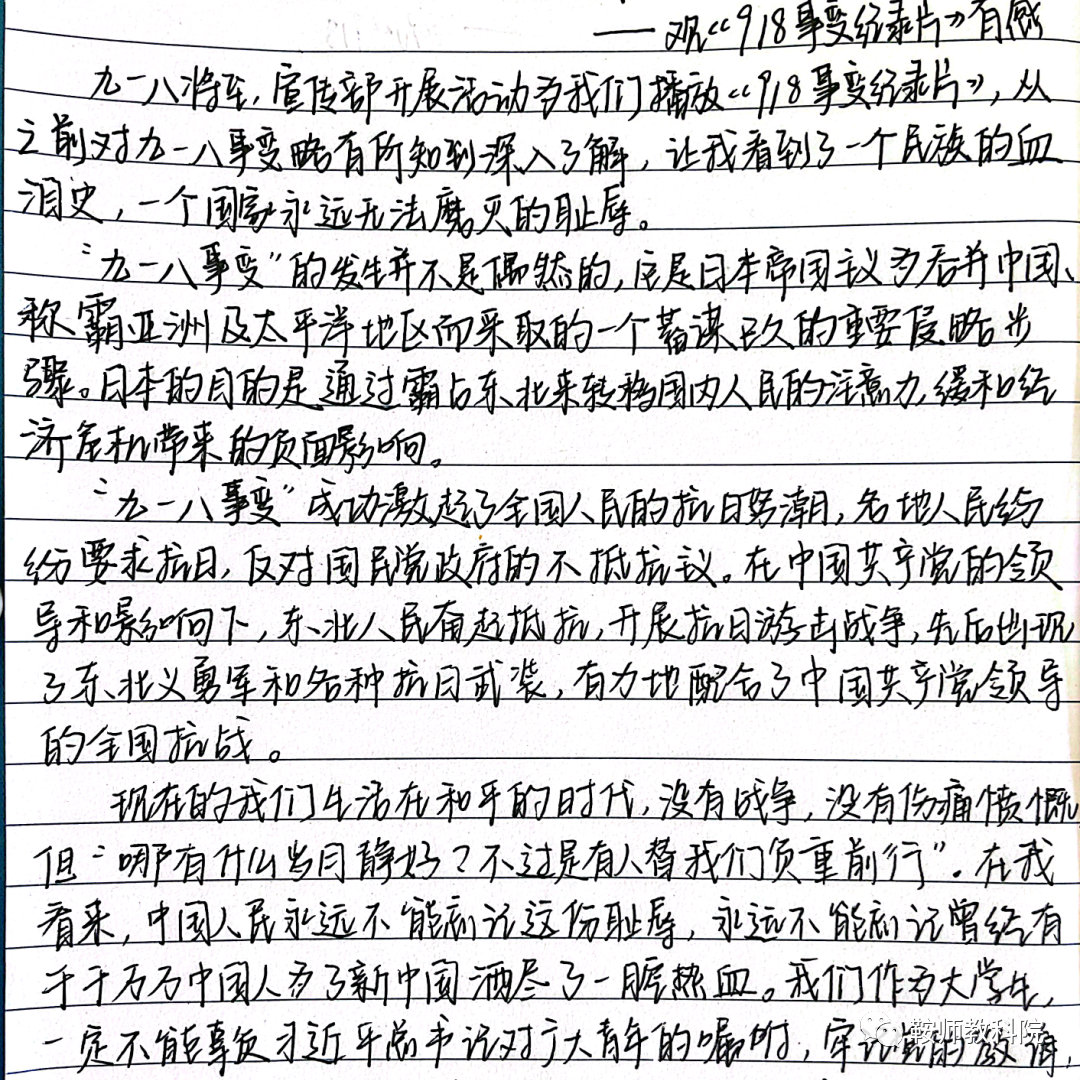 ——观《918事变纪录片》有感
九一八将至，宣传部开展活动为我们播放《918事变纪录片》，从
之前对九一八事变略有所知到深入了解，让我看到了一个民族的血
泪史，一个国家永远无法磨灭的耻辱。
“九一八事变”的发生并不是偶然的，它是日本帝国主义为吞并中国、
称霸亚洲及太平洋地区而采取的一个蓄谋已久的重要侵略步
骤。日本的目的是通过霸占东北来转移国内人民的注意力，缓和经
济危机带来的负面影响。
“九一八事变”成功激起了全国人民的抗日努潮，各地人民纷
纷要求抗日，反对国民党政府的不抵抗议。在中国共产党的领
导和影响下，东北人民奋起抵抗，开展抗日游击战争，先后出现
了东北义勇军和各种抗日武装，有力地配合了中国共产党领导
的全国抗战。
现在的我们生活在和平的时代，没有战争，没有伤痛愤慨
但“哪有什么岁月静好？不过是有人替我们负重前行”。在我
看来，中国人民永远不能忘记这份耻辱，永远不能忘记曾经有
千千万万中国人为了新中国洒尽了一腔热血。我们作为大学生，
一定不能辜负习近平总书记对广大青年的嘱咐，牢记党的教诲，
鞍师教科院